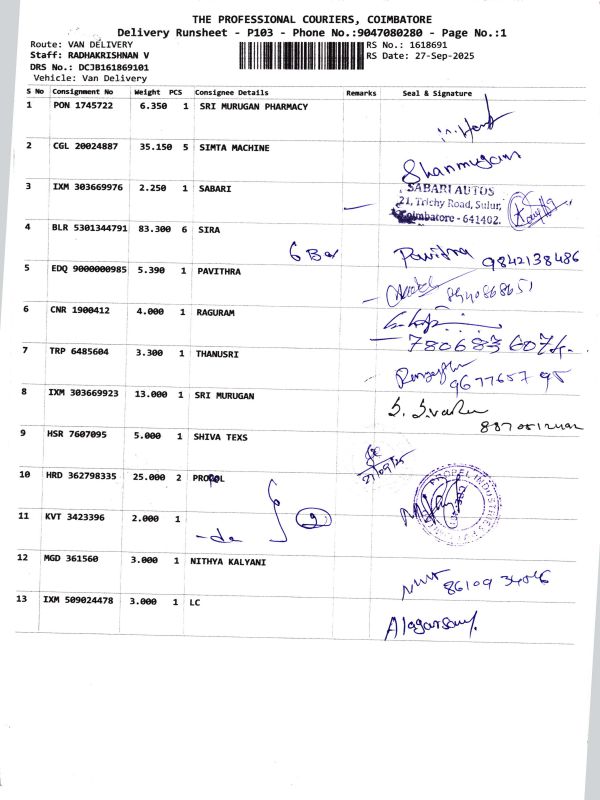 THE PROFESSIONAL COURIERS, COIMBATORE
Delivery Runsheet - P103 - Phone No.:9047080280 - Page No.:1
Route: VAN DELIVERY
RS No.: 1618691
Staff: RADHAKRISHNAN V
RS Date: 27-Sep-2025
DRS No.: DCJB161869101
Vehicle: Van Delivery
S No Consignment No Weight PCS Consignee Details Remarks Seal & Signature
1 PON 1745722 6.350 1 SRI MURUGAN PHARMACY
2 CGL 20024887 35.150 5 SIMTA MACHINE
Shanmugam
3 IXM 303669976 2.250 1 SABARI
SABARI AUTOS
21, Trichy Road, Sulur,
Coimbatore - 641402.
4 BLR 5301344791 83.300 6 SIRA
6 Box
Pavithra 9842138486
5 EDQ 9000000985 5.390 1 PAVITHRA
6 CNR 1900412 4.000 1 RAGURAM
7 TRP 6485604 3.300 1 THANUSRI
8 IXM 303669923 13.000 1 SRI MURUGAN
9 HSR 7607095 5.000 1 SHIVA TEXS
27/09/25
10 HRD 362798335 25.000 2 PROPOL
11 KVT 3423396 2.000 1
-do 2
12 MGD 361560 3.000 1 NITHYA KALYANI
13 IXM 509024478 3.000 1 LC
Alagarsamy